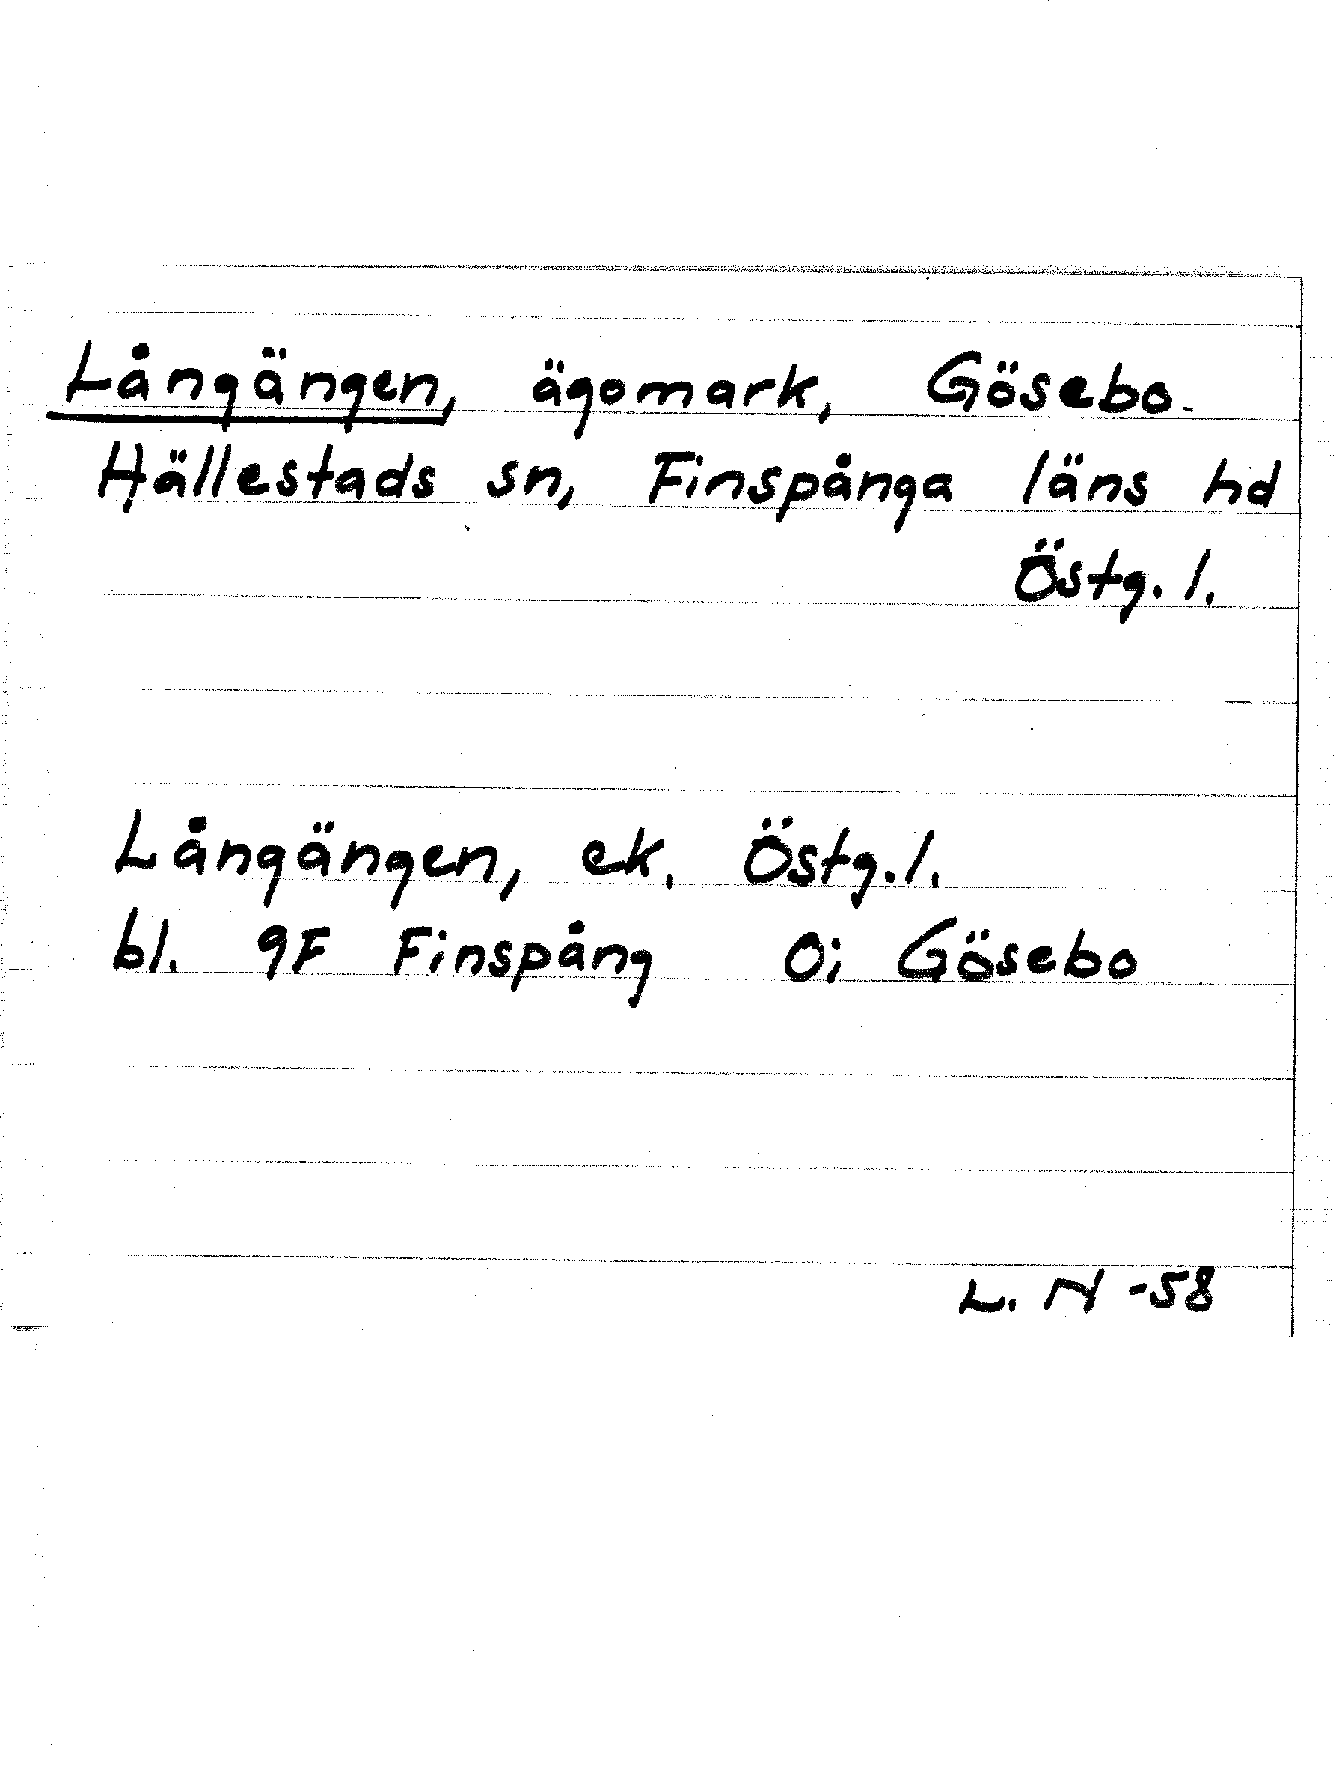 Långängen, ägomark, Gösebo
Hällestads sn, Finspånga läns hd
Östg. l.
Långängen, ek. Östg. l.
bl. 9F Finspång 0i Gösebo
L. N -58